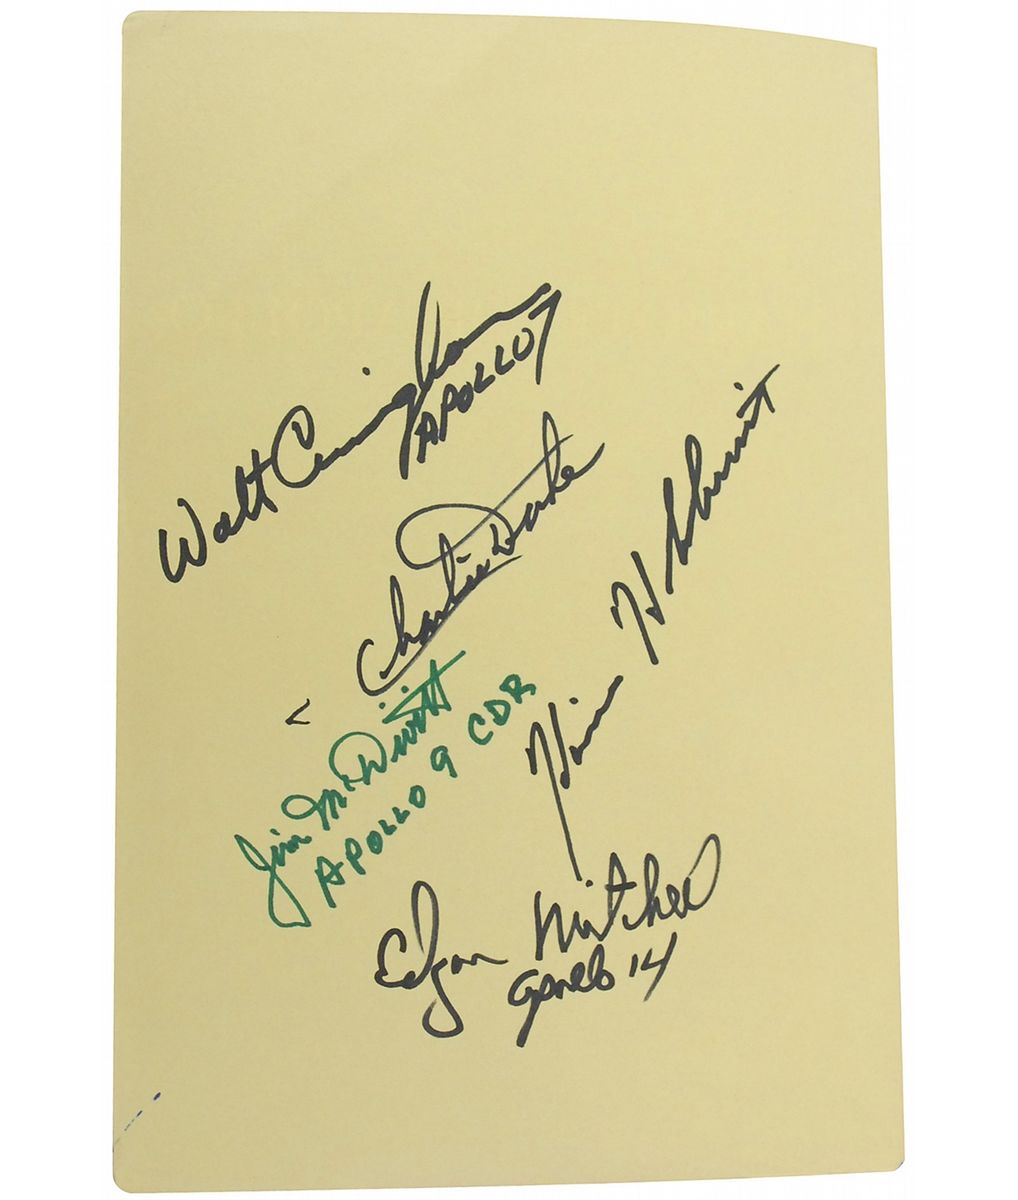 Walt Cunningham
APOLLO 7
Charlie Duke
H Schmitt
Jim McDivitt
APOLLO 9 CDR
Edgar Mitchell
Apollo 14